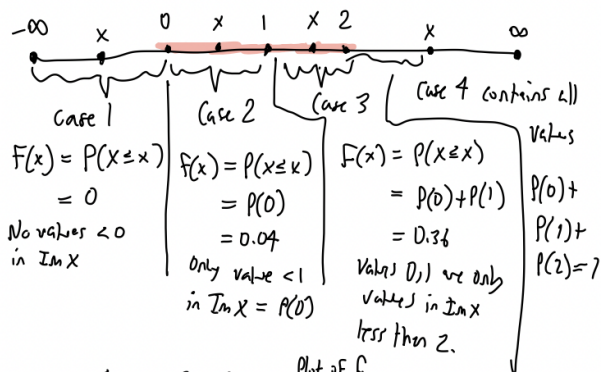 -∞ x 0 x 1 x 2 x ∞
Case 1
F(x) = P(X≤x)
= 0
No values <0
in Im X
Case 2
F(x) = P(X≤x)
= P(0)
= 0.04
Only value <1
in Im X = P(0)
Case 3
F(x) = P(X≤x)
= P(0)+P(1)
= 0.36
Values 0,1 are only
values in Im X
less than 2.
Case 4 contains all
values
P(0)+
P(1)+
P(2)=1
Plot of F